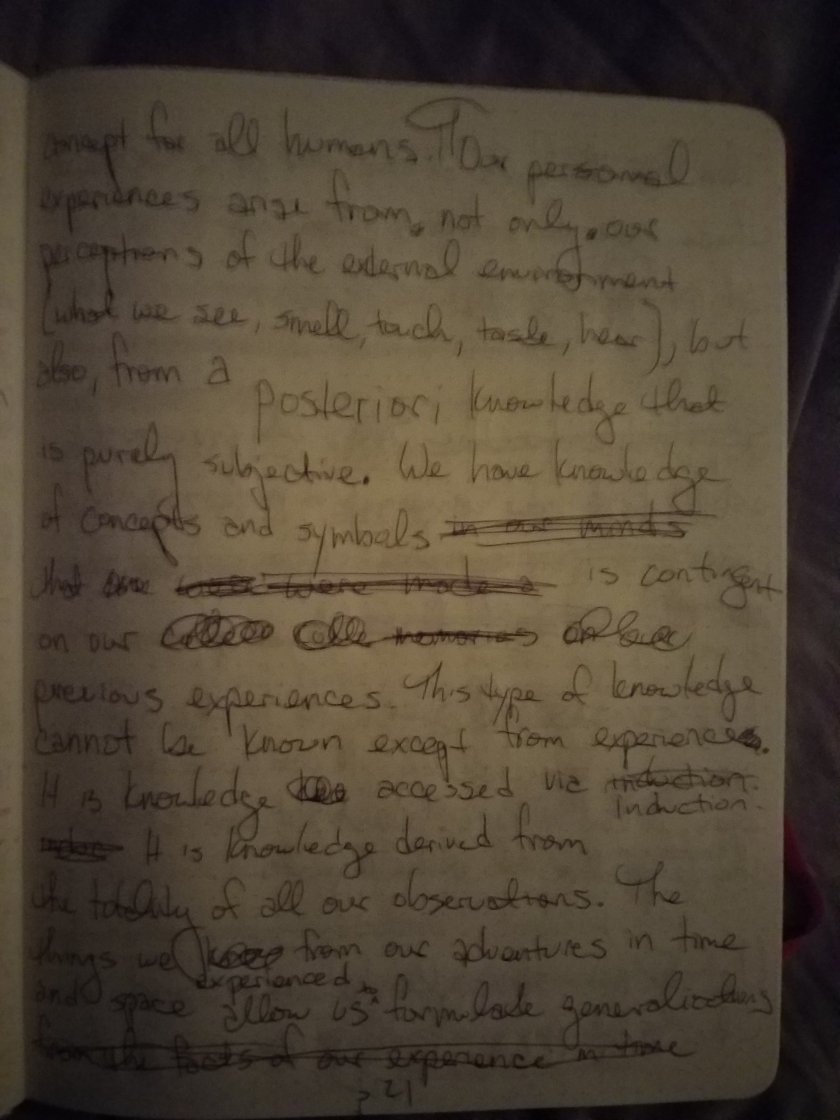 concept for all humans. Our personal
experiences arise from, not only, our
perceptions of the external environment
(what we see, smell, touch, taste, hear), but
also, from a
posteriori knowledge that
is purely subjective. We have knowledge
of concepts and symbols in our minds
that were made is contingent
on our memories
previous experiences. This type of knowledge
cannot be known except from experience.
It is knowledge accessed via induction.
induction.
It is knowledge derived from
the totality of all our observations. The
things we from our adventures in time
experienced
and space allow us to formulate generalizations
from the facts of our experience in time
p 21